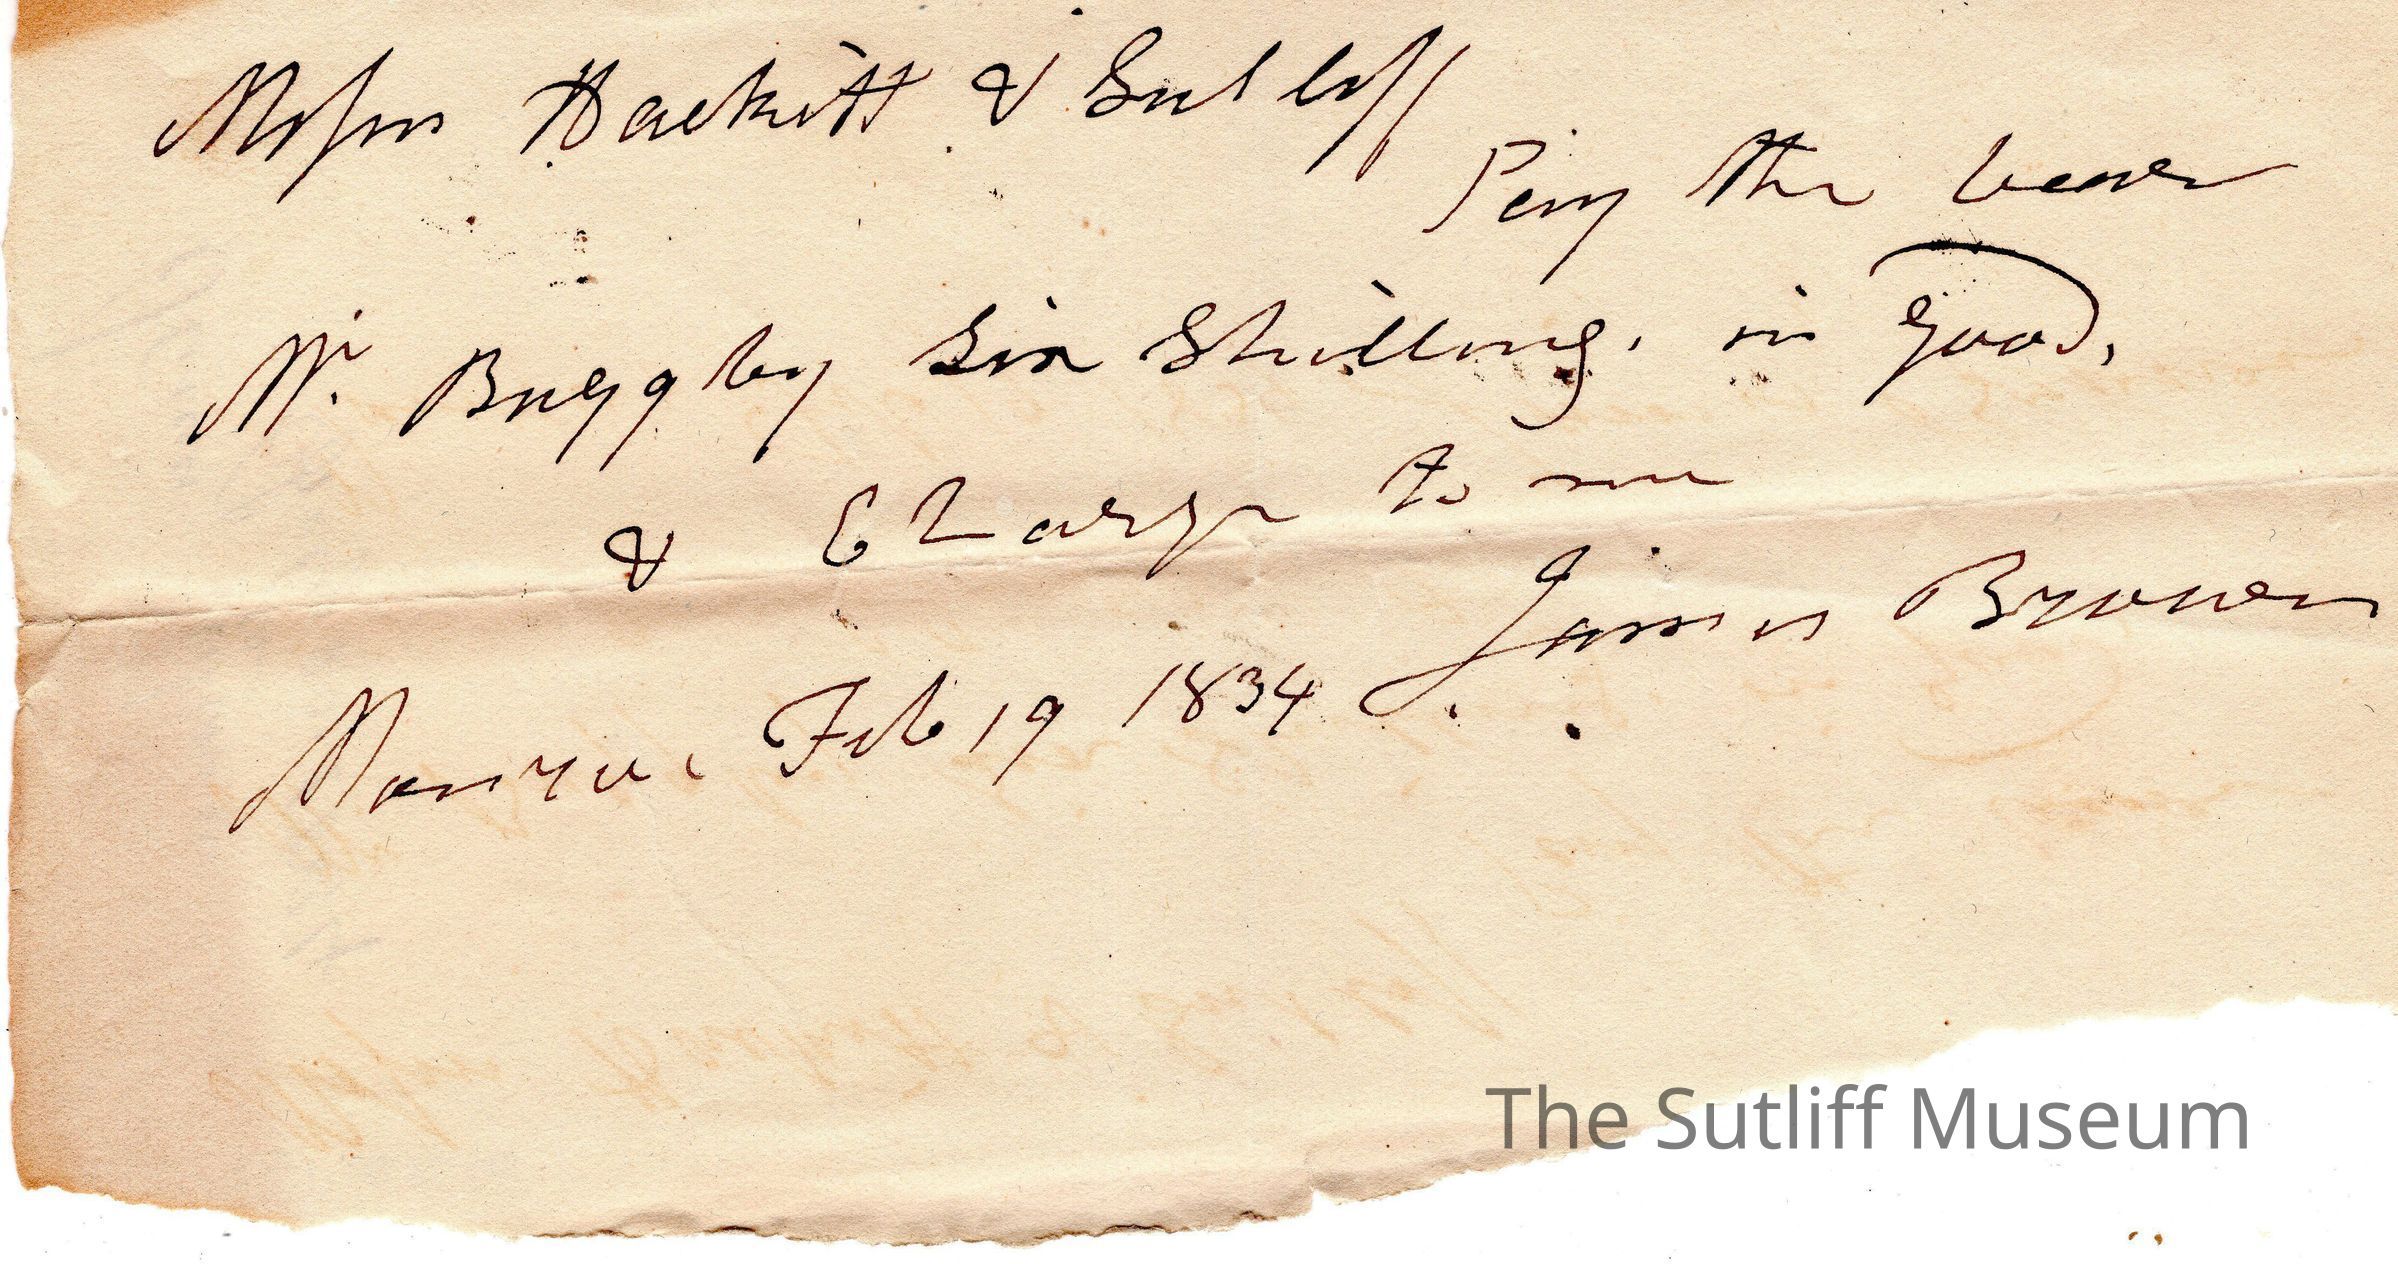 Messrs Hackett & Sutliff
Pay the bearer
Mr. Buggby Six Shilling. in good,
& Charge to me
James Brown
Monroe Feb 19 1834
The Sutliff Museum